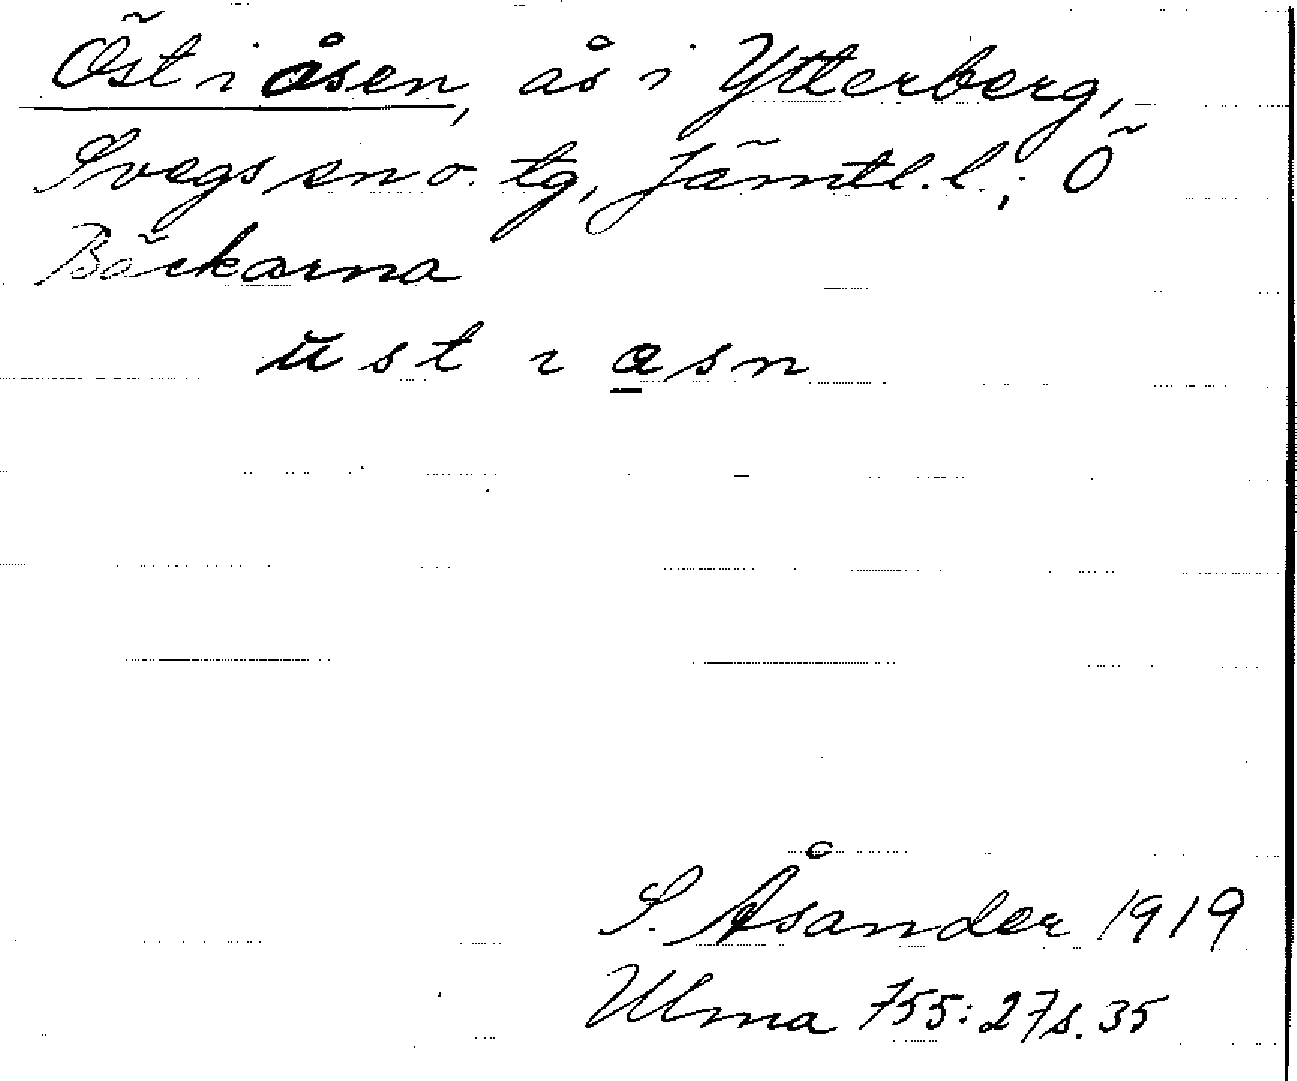 Öst i åsen, ås i Ytterberg,
Svegs sn o. tg, Jämtl. l.; Ö
Bäckarna
üst ı asn
S. Åsander 1919
Ulma 755:27 s. 35